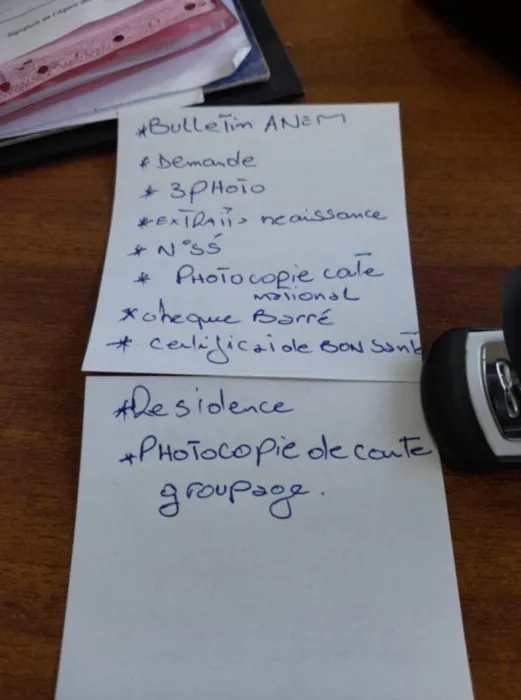 Signature de l'Agent
*Bulletin ANEM
*Demande
* 3 PHOTO
*EXTRAIT neaissance
* N°SS
* PHOTOCOPIE cate
national
*cheque Barré
* certificai de BON santé
*Residence
*PHOTOCOPIE de carte
groupage.